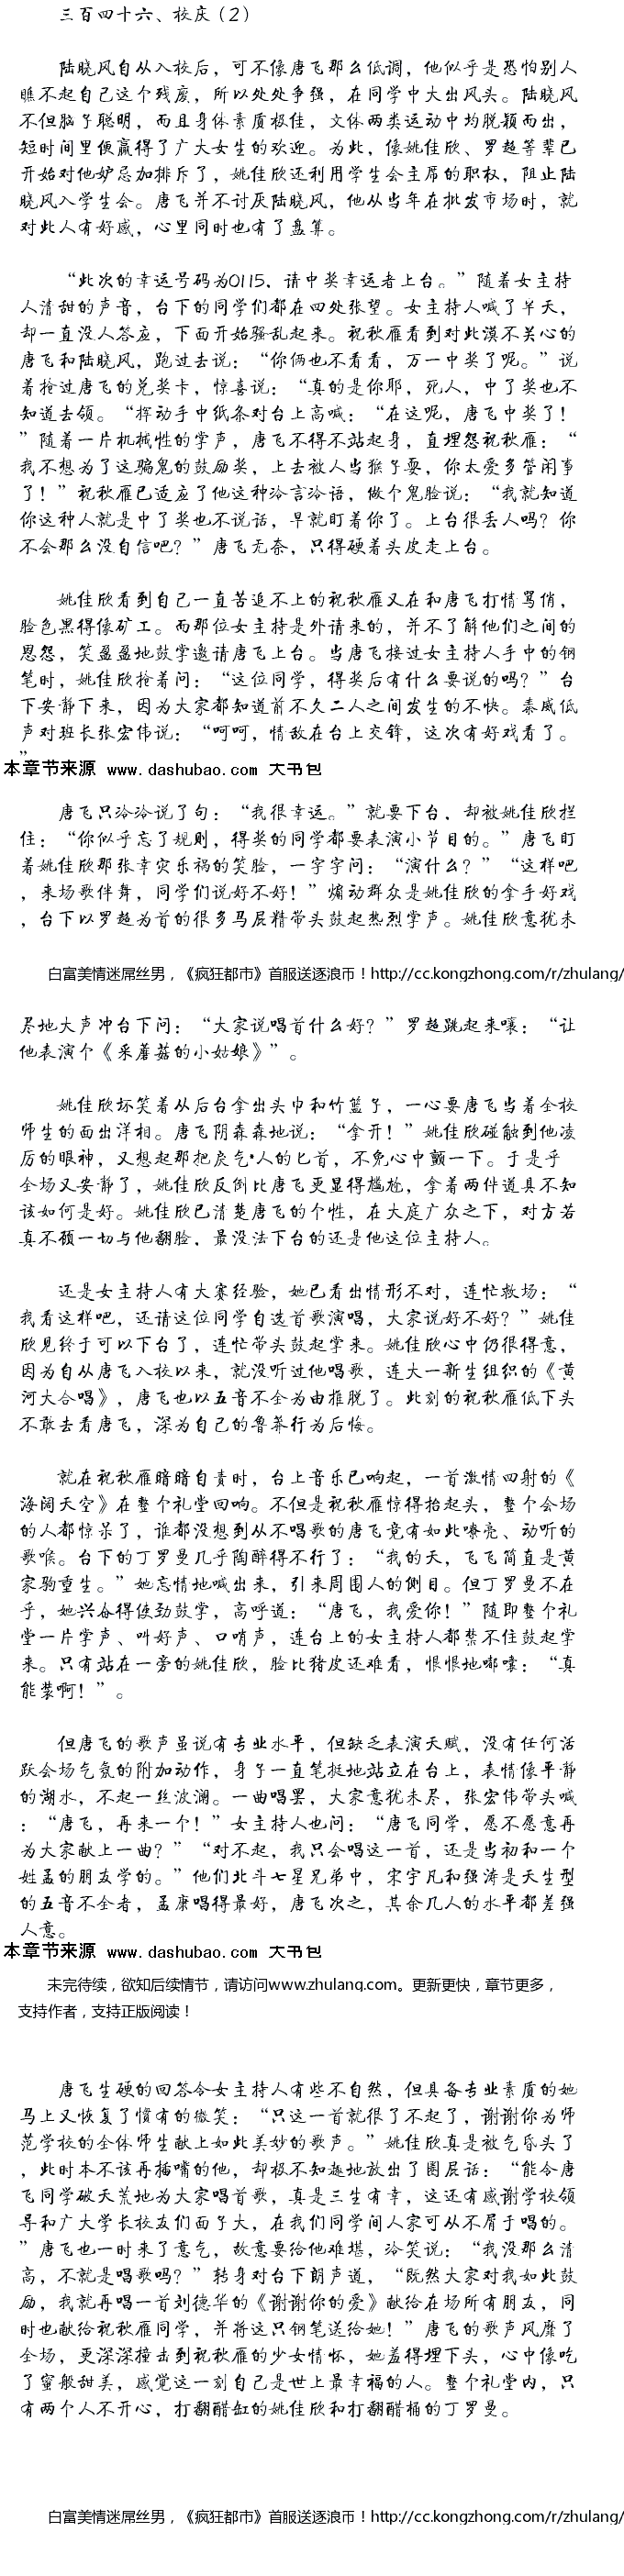 三百四十六、校庆（2）
陆晓风自从入校后，可不像唐飞那么低调，他似乎是恐怕别人
瞧不起自己这个残废，所以处处争强，在同学中大出风头。陆晓风
不但脑子聪明，而且身体素质极佳，文体两类运动中均脱颖而出，
短时间里便赢得了广大女生的欢迎。为此，像姚佳欣、罗超等辈已
开始对他妒忌加排斥了，姚佳欣还利用学生会主席的职权，阻止陆
晓风入学生会。唐飞并不讨厌陆晓风，他从当年在批发市场时，就
对此人有好感，心里同时也有了盘算。
“此次的幸运号码为0115，请中奖幸运者上台。”随着女主持
人清甜的声音，台下的同学们都在四处张望。女主持人喊了半天，
却一直没人答应，下面开始骚乱起来。祝秋雁看到对此漠不关心的
唐飞和陆晓风，跑过去说：“你俩也不看看，万一中奖了呢。”说
着抢过唐飞的兑奖卡，惊喜说：“真的是你耶，死人，中了奖也不
知道去领。“挥动手中纸条对台上高喊：“在这呢，唐飞中奖了！
”随着一片机械性的掌声，唐飞不得不站起身，直埋怨祝秋雁：“
我不想为了这骗鬼的鼓励奖，上去被人当猴子耍，你太爱多管闲事
了！”祝秋雁已适应了他这种冷言冷语，做个鬼脸说：“我就知道
你这种人就是中了奖也不说话，早就盯着你了。上台很丢人吗？你
不会那么没自信吧？”唐飞无奈，只得硬着头皮走上台。
姚佳欣看到自己一直苦追不上的祝秋雁又在和唐飞打情骂俏，
脸色黑得像矿工。而那位女主持是外请来的，并不了解他们之间的
恩怨，笑盈盈地鼓掌邀请唐飞上台。当唐飞接过女主持人手中的钢
笔时，姚佳欣抢着问：“这位同学，得奖后有什么要说的吗？”台
下安静下来，因为大家都知道前不久二人之间发生的不快。秦威低
声对班长张宏伟说：“呵呵，情敌在台上交锋，这次有好戏看了。
”
本章节来源 www.dashubao.com 大书包
唐飞只冷冷说了句：“我很幸运。”就要下台，却被姚佳欣拦
住：“你似乎忘了规则，得奖的同学都要表演小节目的。”唐飞盯
着姚佳欣那张幸灾乐祸的笑脸，一字字问：“演什么？”“这样吧
，来场歌伴舞，同学们说好不好！”煽动群众是姚佳欣的拿手好戏
，台下以罗超为首的很多马屁精带头鼓起热烈掌声。姚佳欣意犹未
白富美情迷屌丝男，《疯狂都市》首服送逐浪币！http://cc.kongzhong.com/r/zhulang/
尽地大声冲台下问：“大家说唱首什么好？”罗超跳起来嚷：“让
他表演个《采蘑菇的小姑娘》”。
姚佳欣坏笑着从后台拿出头巾和竹篮子，一心要唐飞当着全校
师生的面出洋相。唐飞阴森森地说：“拿开！”姚佳欣碰触到他凌
厉的眼神，又想起那把戾气•人的匕首，不免心中颤一下。于是乎
全场又安静了，姚佳欣反倒比唐飞更显得尴尬，拿着两件道具不知
该如何是好。姚佳欣已清楚唐飞的个性，在大庭广众之下，对方若
真不顾一切与他翻脸，最没法下台的还是他这位主持人。
还是女主持人有大赛经验，她已看出情形不对，连忙救场：“
我看这样吧，还请这位同学自选首歌演唱，大家说好不好？”姚佳
欣见终于可以下台了，连忙带头鼓起掌来。姚佳欣心中仍很得意，
因为自从唐飞入校以来，就没听过他唱歌，连大一新生组织的《黄
河大合唱》，唐飞也以五音不全为由推脱了。此刻的祝秋雁低下头
不敢去看唐飞，深为自己的鲁莽行为后悔。
就在祝秋雁暗暗自责时，台上音乐已响起，一首激情四射的《
海阔天空》在整个礼堂回响。不但是祝秋雁惊得抬起头，整个会场
的人都惊呆了，谁都没想到从不唱歌的唐飞竟有如此嘹亮、动听的
歌喉。台下的丁罗曼几乎陶醉得不行了：“我的天，飞飞简直是黄
家驹重生。”她忘情地喊出来，引来周围人的侧目。但丁罗曼不在
乎，她兴奋得使劲鼓掌，高呼道：“唐飞，我爱你！”随即整个礼
堂一片掌声、叫好声、口哨声，连台上的女主持人都禁不住鼓起掌
来。只有站在一旁的姚佳欣，脸比猪皮还难看，恨恨地嘟囔：“真
能装啊！”。
但唐飞的歌声虽说有专业水平，但缺乏表演天赋，没有任何活
跃会场气氛的附加动作，身子一直笔挺地站立在台上，表情像平静
的湖水，不起一丝波澜。一曲唱罢，大家意犹未尽，张宏伟带头喊
：“唐飞，再来一个！”女主持人也问：“唐飞同学，愿不愿意再
为大家献上一曲？”“对不起，我只会唱这一首，还是当初和一个
姓孟的朋友学的。”他们北斗七星兄弟中，宋宇凡和强涛是天生型
的五音不全者，孟康唱得最好，唐飞次之，其余几人的水平都差强
人意。
本章节来源 www.dashubao.com 大书包
未完待续，欲知后续情节，请访问www.zhulang.com。更新更快，章节更多，
支持作者，支持正版阅读！
唐飞生硬的回答令女主持人有些不自然，但具备专业素质的她
马上又恢复了惯有的微笑：“只这一首就很了不起了，谢谢你为师
范学校的全体师生献上如此美妙的歌声。”姚佳欣真是被气昏头了
，此时本不该再插嘴的他，却极不知趣地放出了圈屁话：“能令唐
飞同学破天荒地为大家唱首歌，真是三生有幸，这还有感谢学校领
导和广大学长校友们面子大，在我们同学间人家可从不屑于唱的。
”唐飞也一时来了意气，故意要给他难堪，冷笑说：“我没那么清
高，不就是唱歌吗？”转身对台下朗声道，“既然大家对我如此鼓
励，我就再唱一首刘德华的《谢谢你的爱》献给在场所有朋友，同
时也献给祝秋雁同学，并将这只钢笔送给她！”唐飞的歌声风靡了
全场，更深深撞击到祝秋雁的少女情怀，她羞得埋下头，心中像吃
了蜜般甜美，感觉这一刻自己是世上最幸福的人。整个礼堂内，只
有两个人不开心，打翻醋缸的姚佳欣和打翻醋桶的丁罗曼。
白富美情迷屌丝男，《疯狂都市》首服送逐浪币！http://cc.kongzhong.com/r/zhulang/